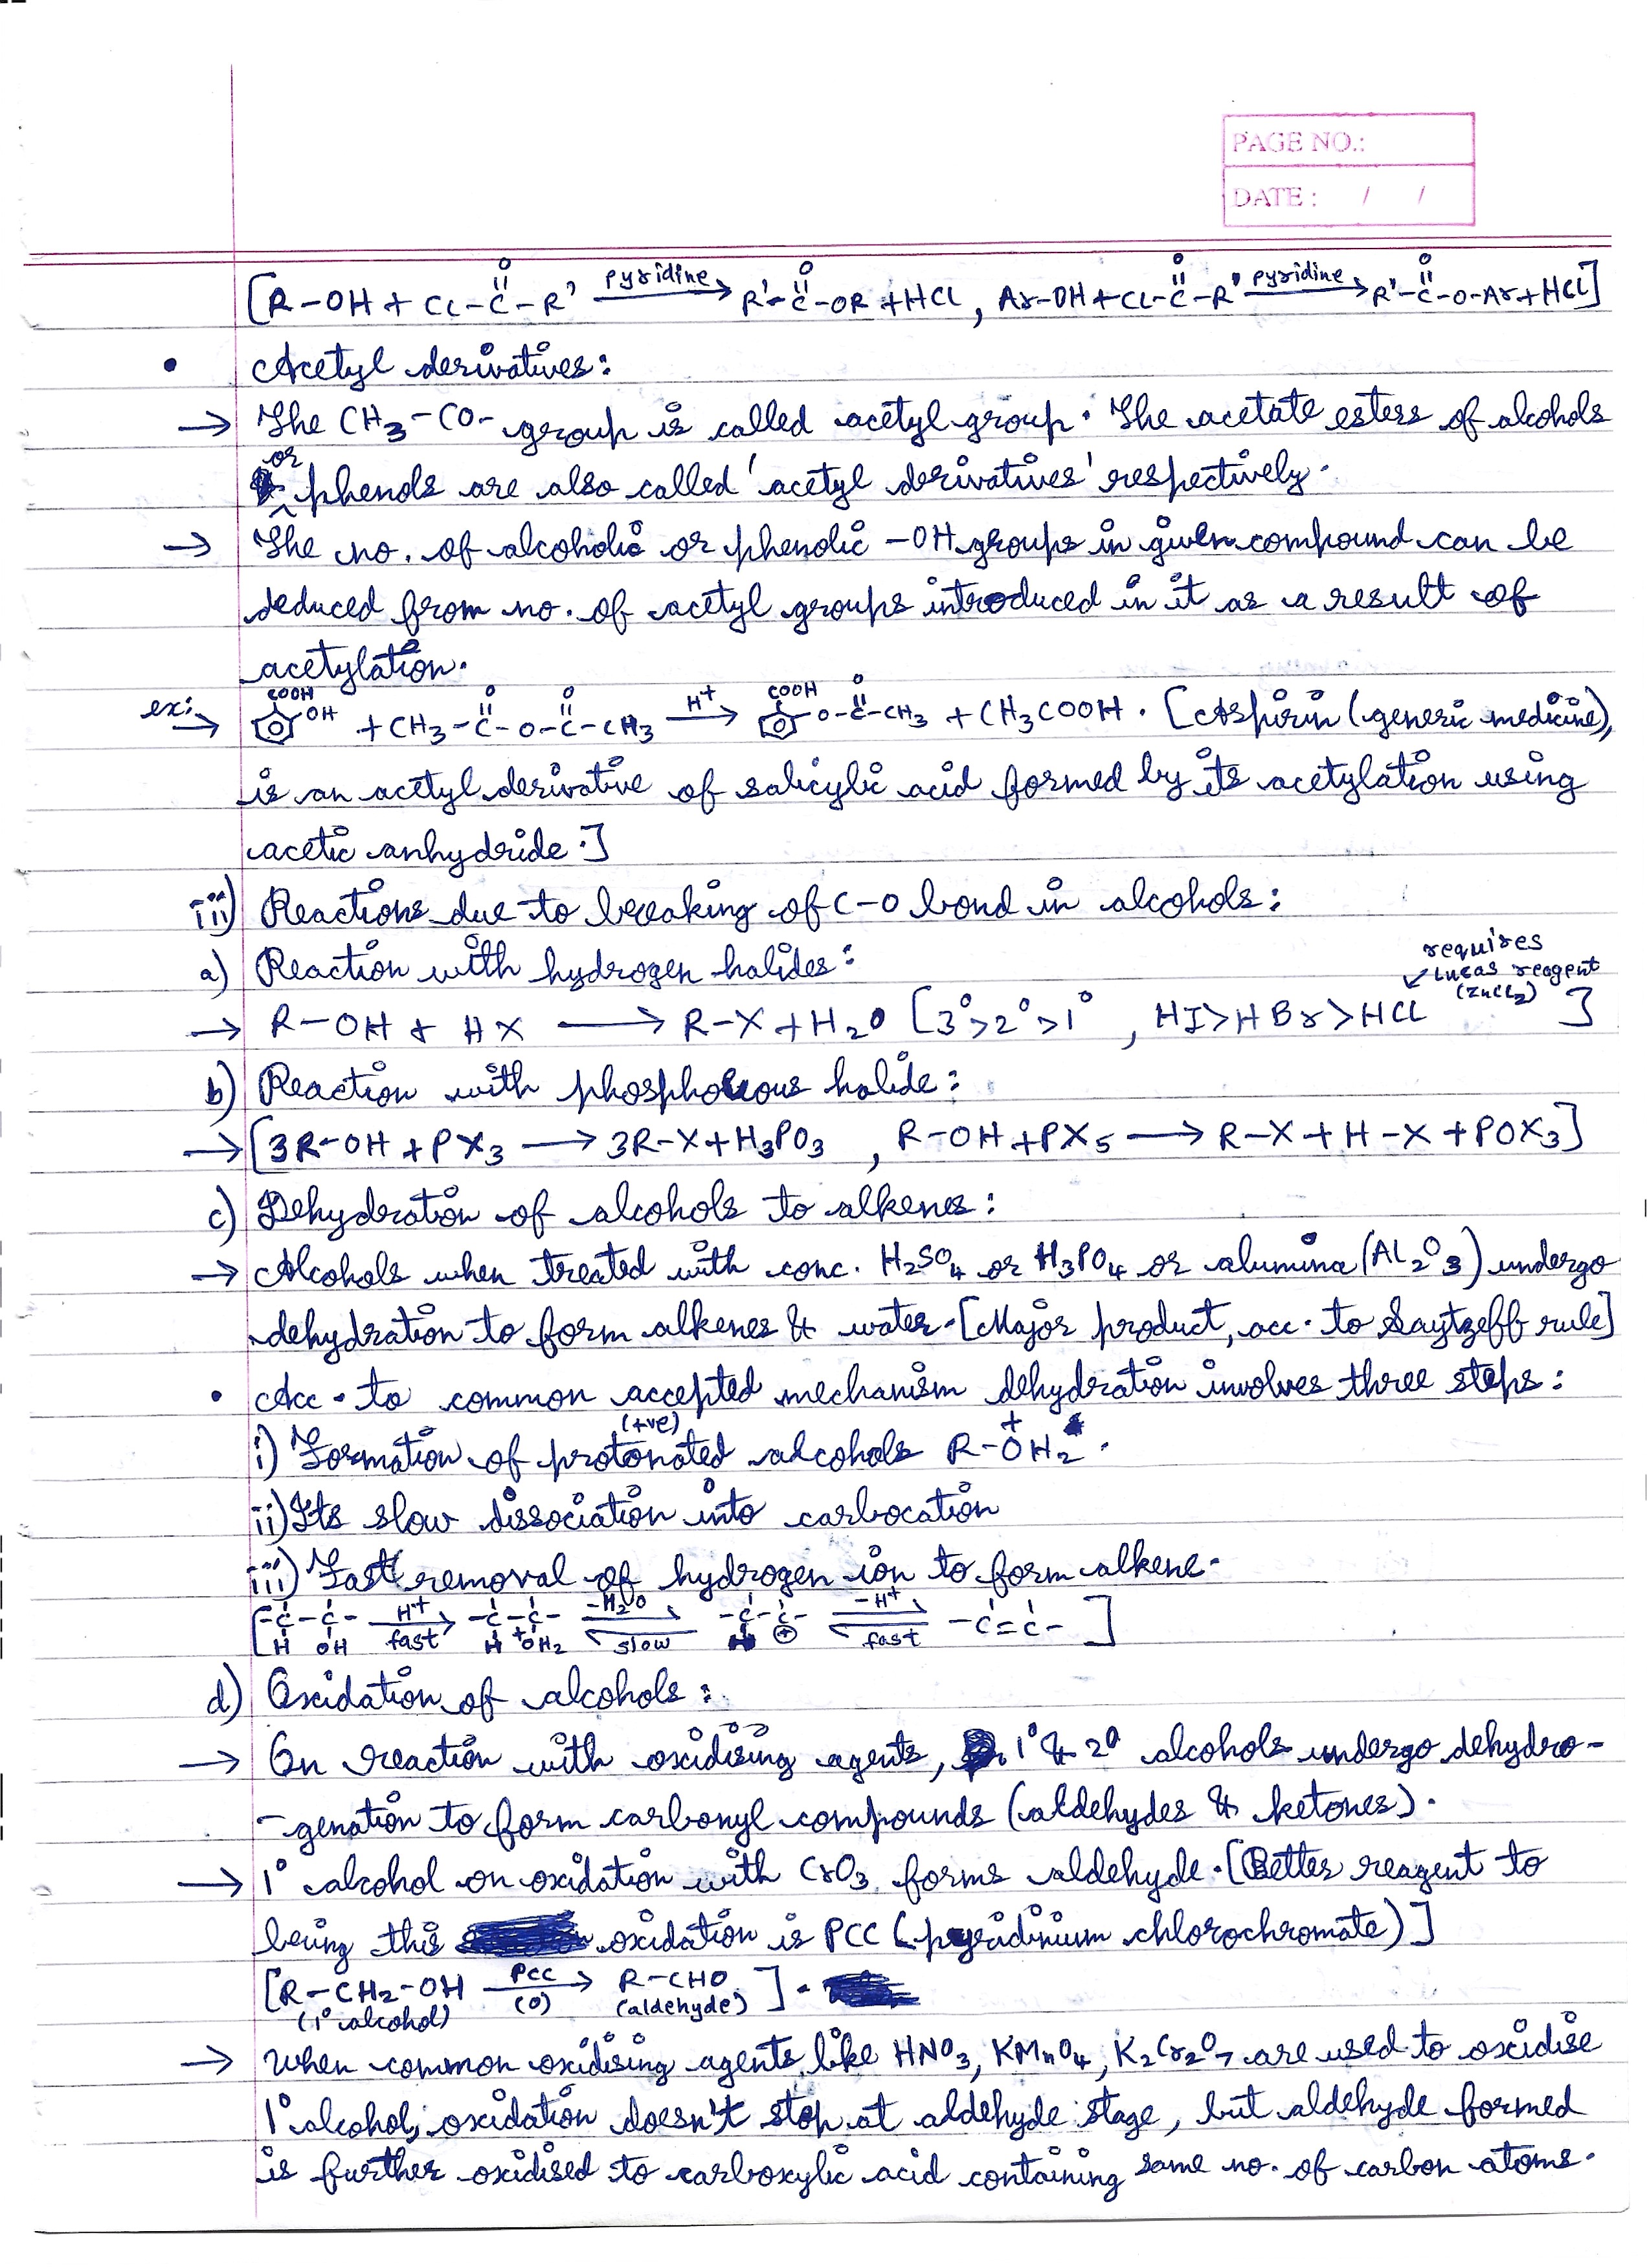 PAGE NO.:
DATE : / /
[R-OH + Cl-C(=O)-R' —pyridine→ R'-C(=O)-OR + HCl, Ar-OH + Cl-C(=O)-R' —pyridine→ R'-C(=O)-O-Ar + HCl]
• Acetyl derivatives:
→ The CH3-CO- group is called acetyl group. The acetate esters of alcohols
or phenols are also called 'acetyl derivatives' respectively.
→ The no. of alcoholic or phenolic -OH groups in given compound can be
deduced from no. of acetyl groups introduced in it as a result of
acetylation.
ex:→ COOH OH + CH3-C(=O)-O-C(=O)-CH3 —H+→ COOH O-C(=O)-CH3 + CH3COOH. [Aspirin (generic medicine),
is an acetyl derivative of salicylic acid formed by its acetylation using
acetic anhydride.]
iii) Reactions due to breaking of C-O bond in alcohols:
a) Reaction with hydrogen halides:
→ R-OH + HX → R-X + H2O [3°>2°>1°, HI>HBr>HCl ↙ requires Lucas reagent (ZnCl2)]
b) Reaction with phosphorous halide:
→ [3R-OH + PX3 → 3R-X + H3PO3, R-OH + PX5 → R-X + H-X + POX3]
c) Dehydration of alcohols to alkenes:
→ Alcohols when treated with conc. H2SO4 or H3PO4 or alumina (Al2O3) undergo
dehydration to form alkenes & water. [Major product, acc. to Saytzeff rule]
• Acc. to common accepted mechanism dehydration involves three steps:
i) Formation of protonated (+ve) alcohols R-O+H2.
ii) Its slow dissociation into carbocation
iii) Fast removal of hydrogen ion to form alkene.
[-C(H)-C(OH)- —H+ fast→ -C(H)-C(+OH2)- ⇌ -H2O slow -C-C(⊕)- ⇌ -H+ fast -C=C-]
d) Oxidation of alcohols:
→ On reaction with oxidising agents, 1° & 2° alcohols undergo dehydro-
-genation to form carbonyl compounds (aldehydes & ketones).
→ 1° alcohol on oxidation with CrO3 forms aldehyde. [Better reagent to
being this oxidation is PCC (pyridinium chlorochromate)]
[R-CH2-OH (1° alcohol) —PCC (O)→ R-CHO (aldehyde)].
→ When common oxidising agents like HNO3, KMnO4, K2Cr2O7 are used to oxidise
1° alcohol, oxidation doesn't stop at aldehyde stage, but aldehyde formed
is further oxidised to carboxylic acid containing same no. of carbon atoms.